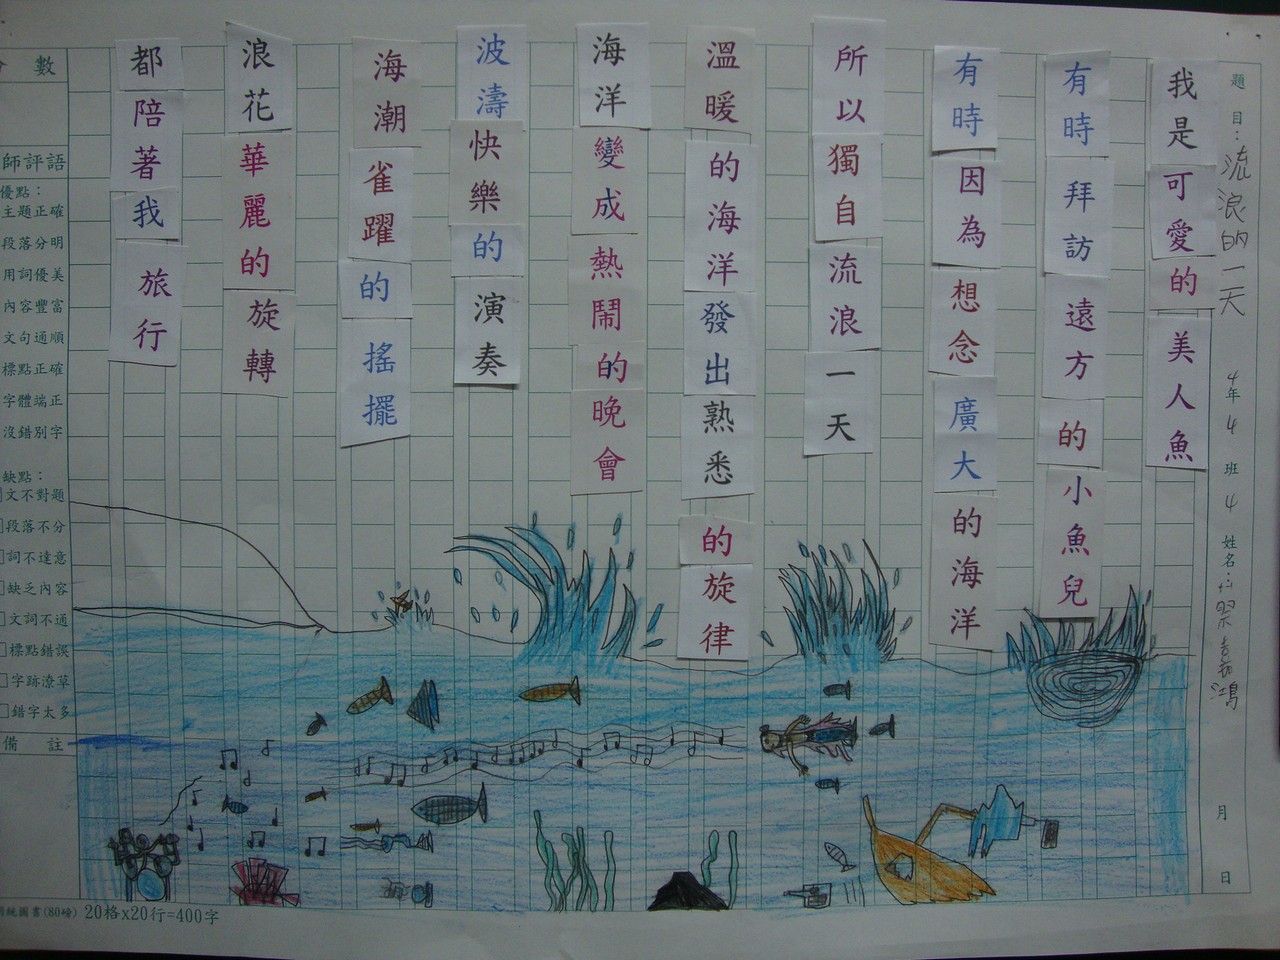 題目：流浪的一天
4年4班4 姓名：
月 日
我是可愛的美人魚
有時拜訪遠方的小魚兒
有時因為想念廣大的海洋
所以獨自流浪一天
溫暖的海洋發出熟悉的旋律
海洋變成熱鬧的晚會
波濤快樂的演奏
海潮雀躍的搖擺
浪花華麗的旋轉
都陪著我旅行
數
師評語
優點：
主題正確
段落分明
用詞優美
內容豐富
文句通順
標點正確
字體端正
沒錯別字
缺點：
文不對題
段落不分
詞不達意
缺乏內容
文詞不通
標點錯誤
字跡潦草
錯字太多
備註
統圖書(80磅) 20格x20行=400字